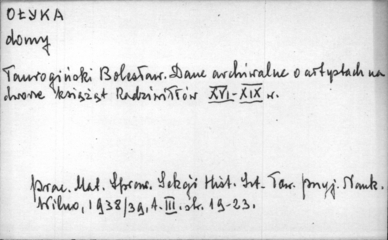 OŁYKA
domy
Taurogiński Bolesław. Dane archiwalne o artystach na
dworze książąt Radziwiłłów XVI-XIX w.
Prac. Mat. Spraw. Sekcji Hist. Szt. Tow. przyj. Nauk.
Wilno, 1938/39, t. III. str. 19-23.